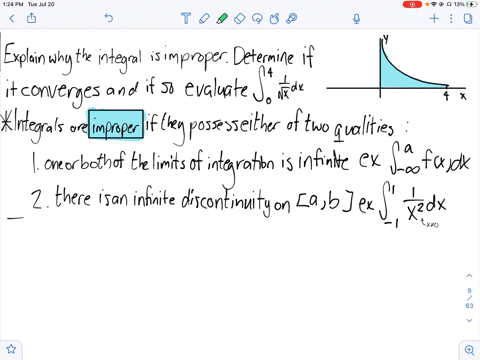 1:24 PM Tue Jul 20
13%
Explain why the integral is improper. Determine if
it converges and if so evaluate ∫₀⁴ 1/√x dx
y
4 x
*Integrals are improper if they possess either of two qualities:
1. one or both of the limits of integration is infinite ex ∫₋∞ᵃ f(x)dx
2. there is an infinite discontinuity on [a,b] ex ∫₋₁¹ 1/x² dx
x≠0
9
/
63